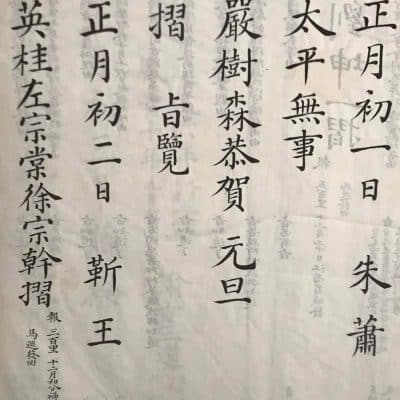 正月初一日 朱 蕭
太平無事
嚴樹森恭賀 元旦
摺 旨覽
正月初二日 靳 王
英桂左宗棠徐宗幹摺
報 三百里 十二月初
馬遞發回